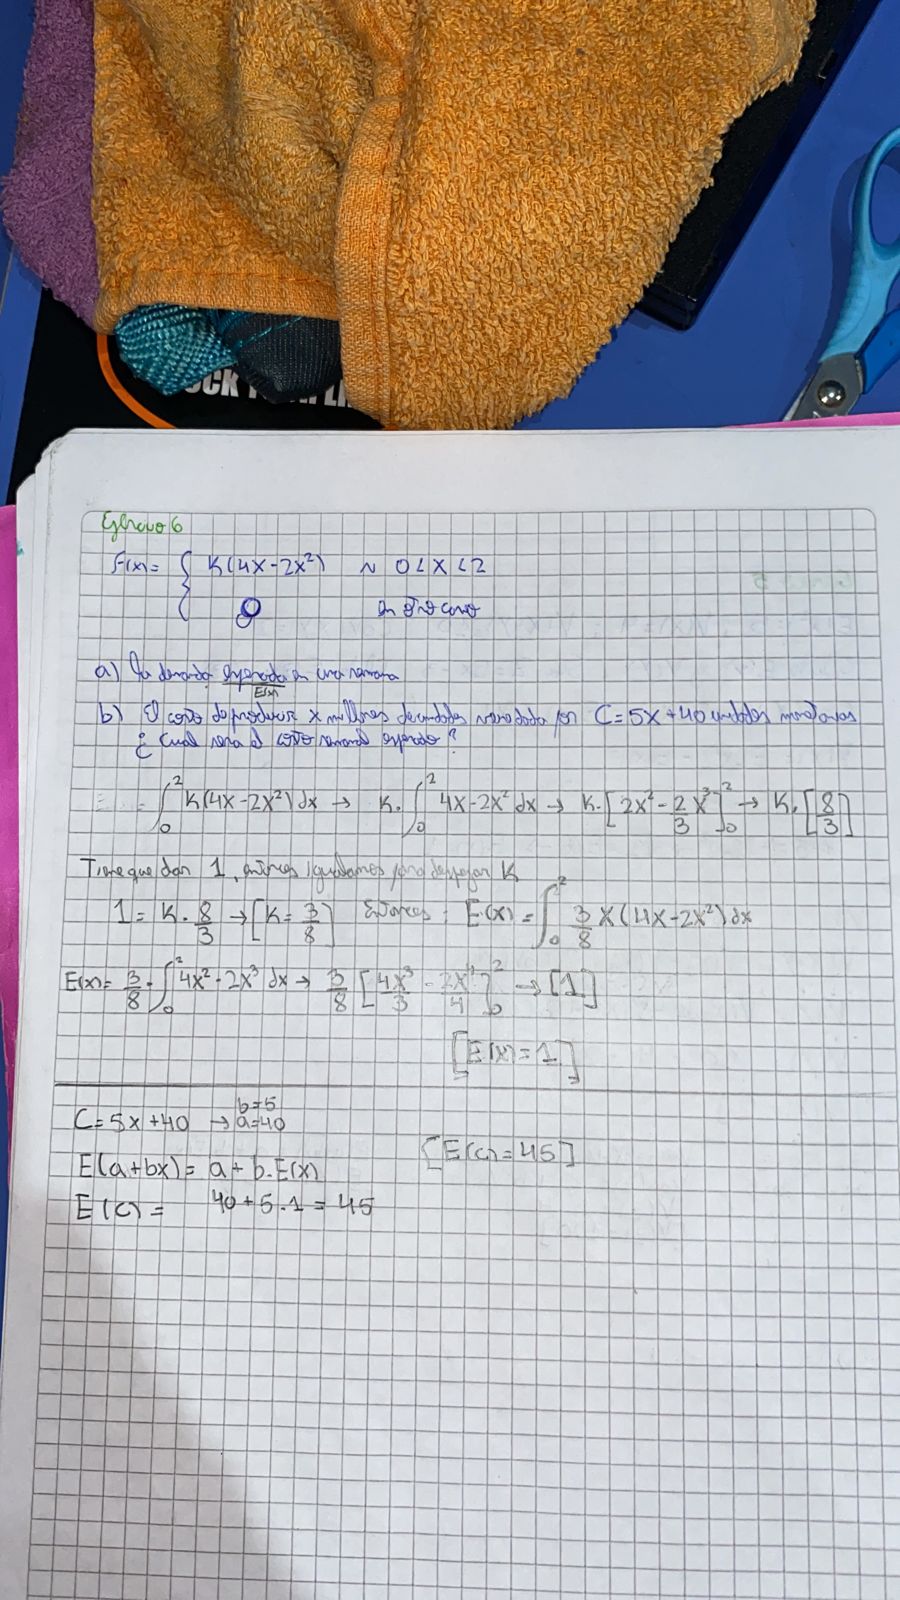 Ejercicio 6
F(x) = { K(4x-2x²) si 0 < x < 2
0 en otro caso
a) La demanda esperada en una semana
E(x)
b) El costo de producir x millones de unidades viene dada por C = 5x + 40 unidades monetarias
¿Cual sera el costo semanal esperado?
= ∫₀² K(4x-2x²) dx → K. ∫₀² 4x-2x² dx → K. [2x² - 2/3 x³]₀² → K. [8/3]
Tiene que dar 1, entonces igualamos para despejar K
1 = K . 8/3 → [K = 3/8] Entonces: E(x) = ∫₀² 3/8 x (4x-2x²) dx
E(x) = 3/8 . ∫₀² 4x² - 2x³ dx → 3/8 [4x³/3 - 2x⁴/4]₀² → [1]
[E(x) = 1]
b=5
C = 5x + 40 → a=40
[E(c) = 45]
E(a+bx) = a + b.E(x)
E(c) = 40 + 5.1 = 45